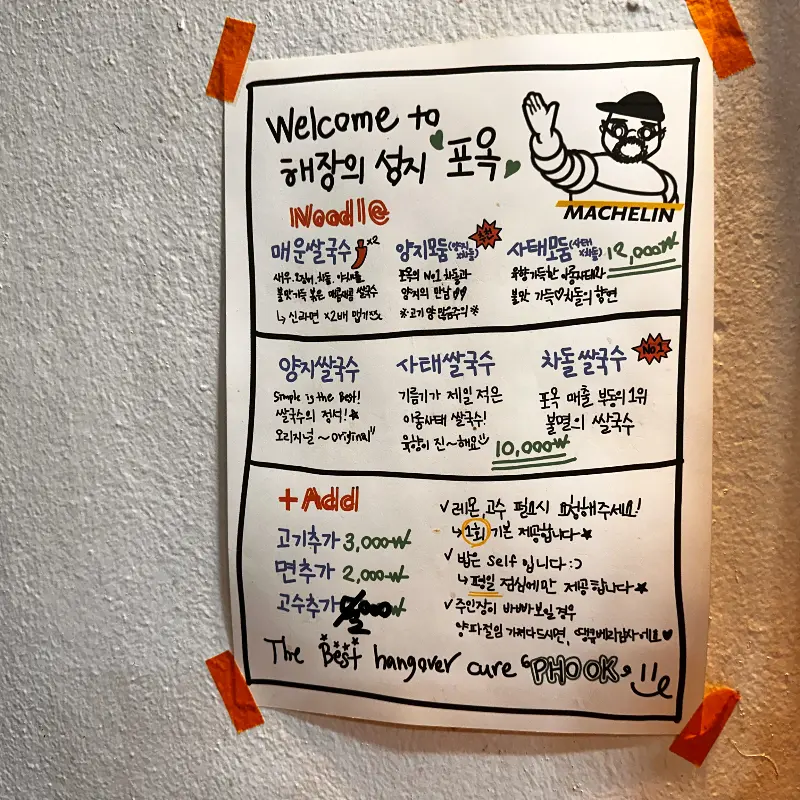 Welcome to
해장의 성지 포옥
MACHELIN
Noodle
매운쌀국수 x2
새우, 오징어, 차돌, 야채를
불맛가득 볶은 매콤새콤 쌀국수
↳ 신라면 x2배 맵기
양지모둠(양지x차돌)
포옥의 No1 차돌과
양지의 만남
※고기 양 많음주의※
사태모둠(사태x차돌) 12,000₩
육향가득한 아롱사태와
불맛 가득♡차돌의 향연
양지쌀국수
Simple is the Best!
쌀국수의 정석!★
오리지널 ~original"
사태쌀국수
기름기가 제일 적은
아롱사태 쌀국수!
육향이 진~해요
차돌쌀국수 No1
포옥 매출 부동의 1위
불멸의 쌀국수
10,000₩
+Add
고기추가 3,000₩
면추가 2,000₩
고수추가
✓레몬, 고수 필요시 요청해주세요!
↳1회 기본 제공합니다★
✓밥은 self 입니다 :)
↳평일 점심에만 제공합니다★
✓주인장이 바빠보일경우
양파절임 가져다드시면, 땡큐베리감사에요♥
The Best hangover cure "PHOOK"